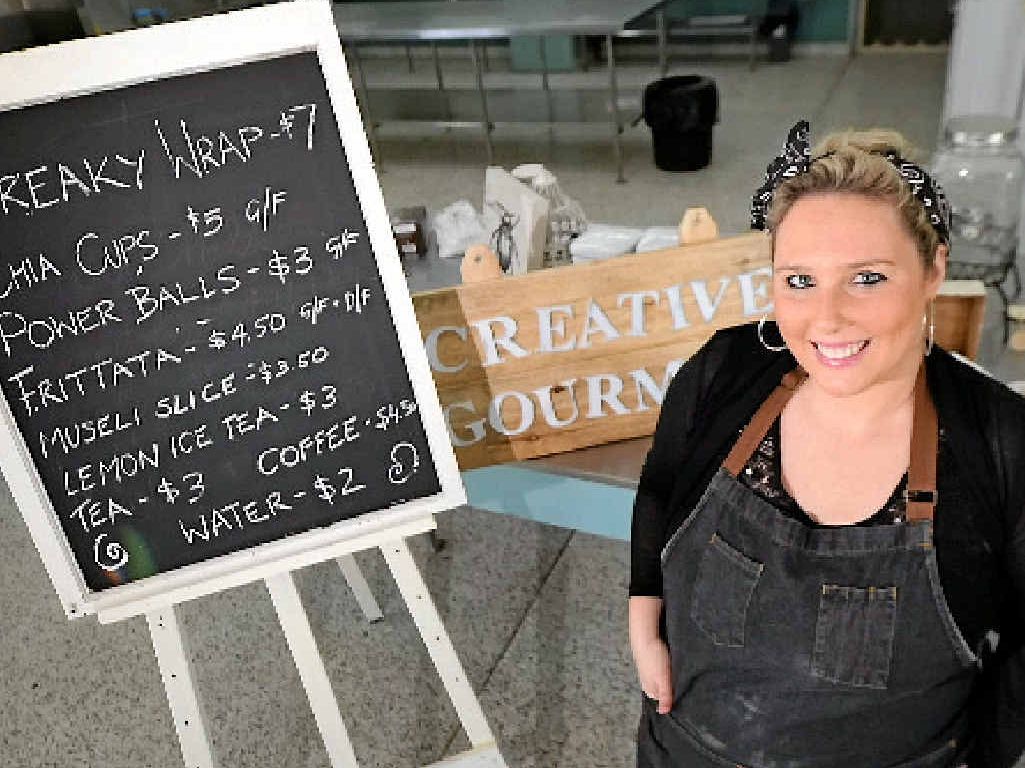 REAKY WRAP - $7
CHIA CUPS - $5 G/F
POWER BALLS - $3 G/F
FRITTATA - $4.50 G/F - D/F
MUSELI SLICE - $3.50
LEMON ICE TEA - $3
TEA - $3 COFFEE - $4.50
WATER - $2
CREATIVE
GOURM